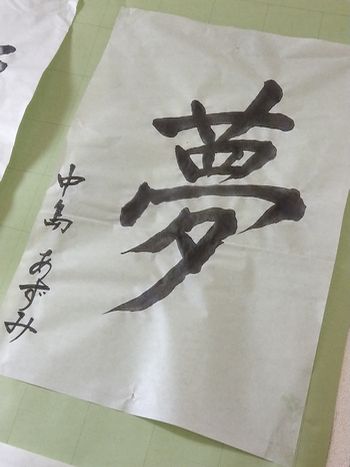 夢
中島 あずみ